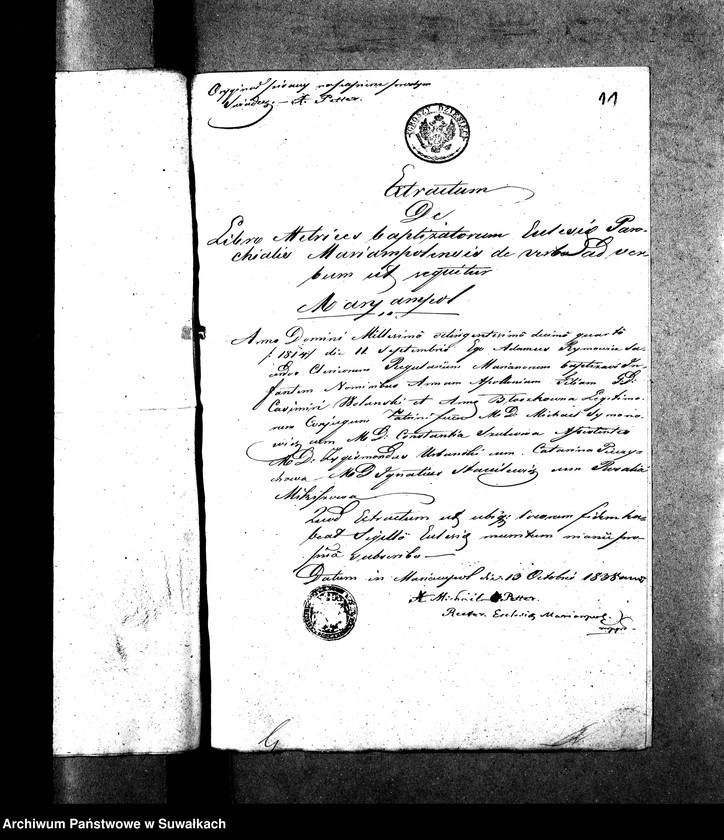 Oryginał
Świadczę – X. Petter.
11
GROSZY DZIESIĘĆ
Extractum
De
Libro Metrices baptizatorum Eclesiæ Paro-
chialis Mariampolensis de verbo ad ver-
bum ut sequitur
Maryampol
Anno Domini Millesimo octingentesimo decimo quarto
1814 die 11 Septembris Ego Adamus Sa-
cerdos Clericorum Regularium Marianorum baptizavi In-
fantem Nominibus Annam Apolloniam Filiam GD:
Casimiri Wolanski et Annæ Legitimo-
rum Conjugum Patrini fuere M.D. Michael Symono-
wicz cum M.D: Constantia Assistentes
M.D: Zygismundus Urbanski cum Catarina
M.D Ignatius cum Rosalia
Quod Extractum ut ubiq; locorum fidem ha-
beat Sigillo Eclesiæ munitum manu pro-
pria subscribo –
Datum in Mariampol die 10 Octobris 1838 anno
X Michäel Petter.
Rector Eclesiæ Mariampol.
mppr.
Archiwum Państwowe w Suwałkach